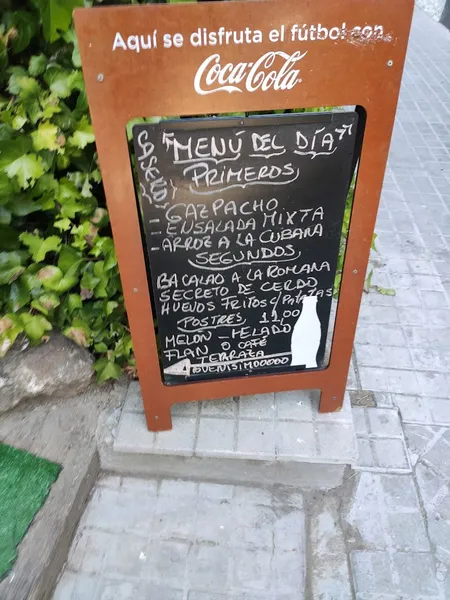 Aquí se disfruta el fútbol con
Coca-Cola
MENÚ DEL DÍA
PRIMEROS
- GAZPACHO
- ENSALADA MIXTA
- ARROZ A LA CUBANA
SEGUNDOS
BACALAO A LA ROMANA
SECRETO DE CERDO
HUEVOS FRITOS C/ PATATAS
POSTRES 11,00
MELON - HELADO
FLAN O CAFÉ
TERRAZA